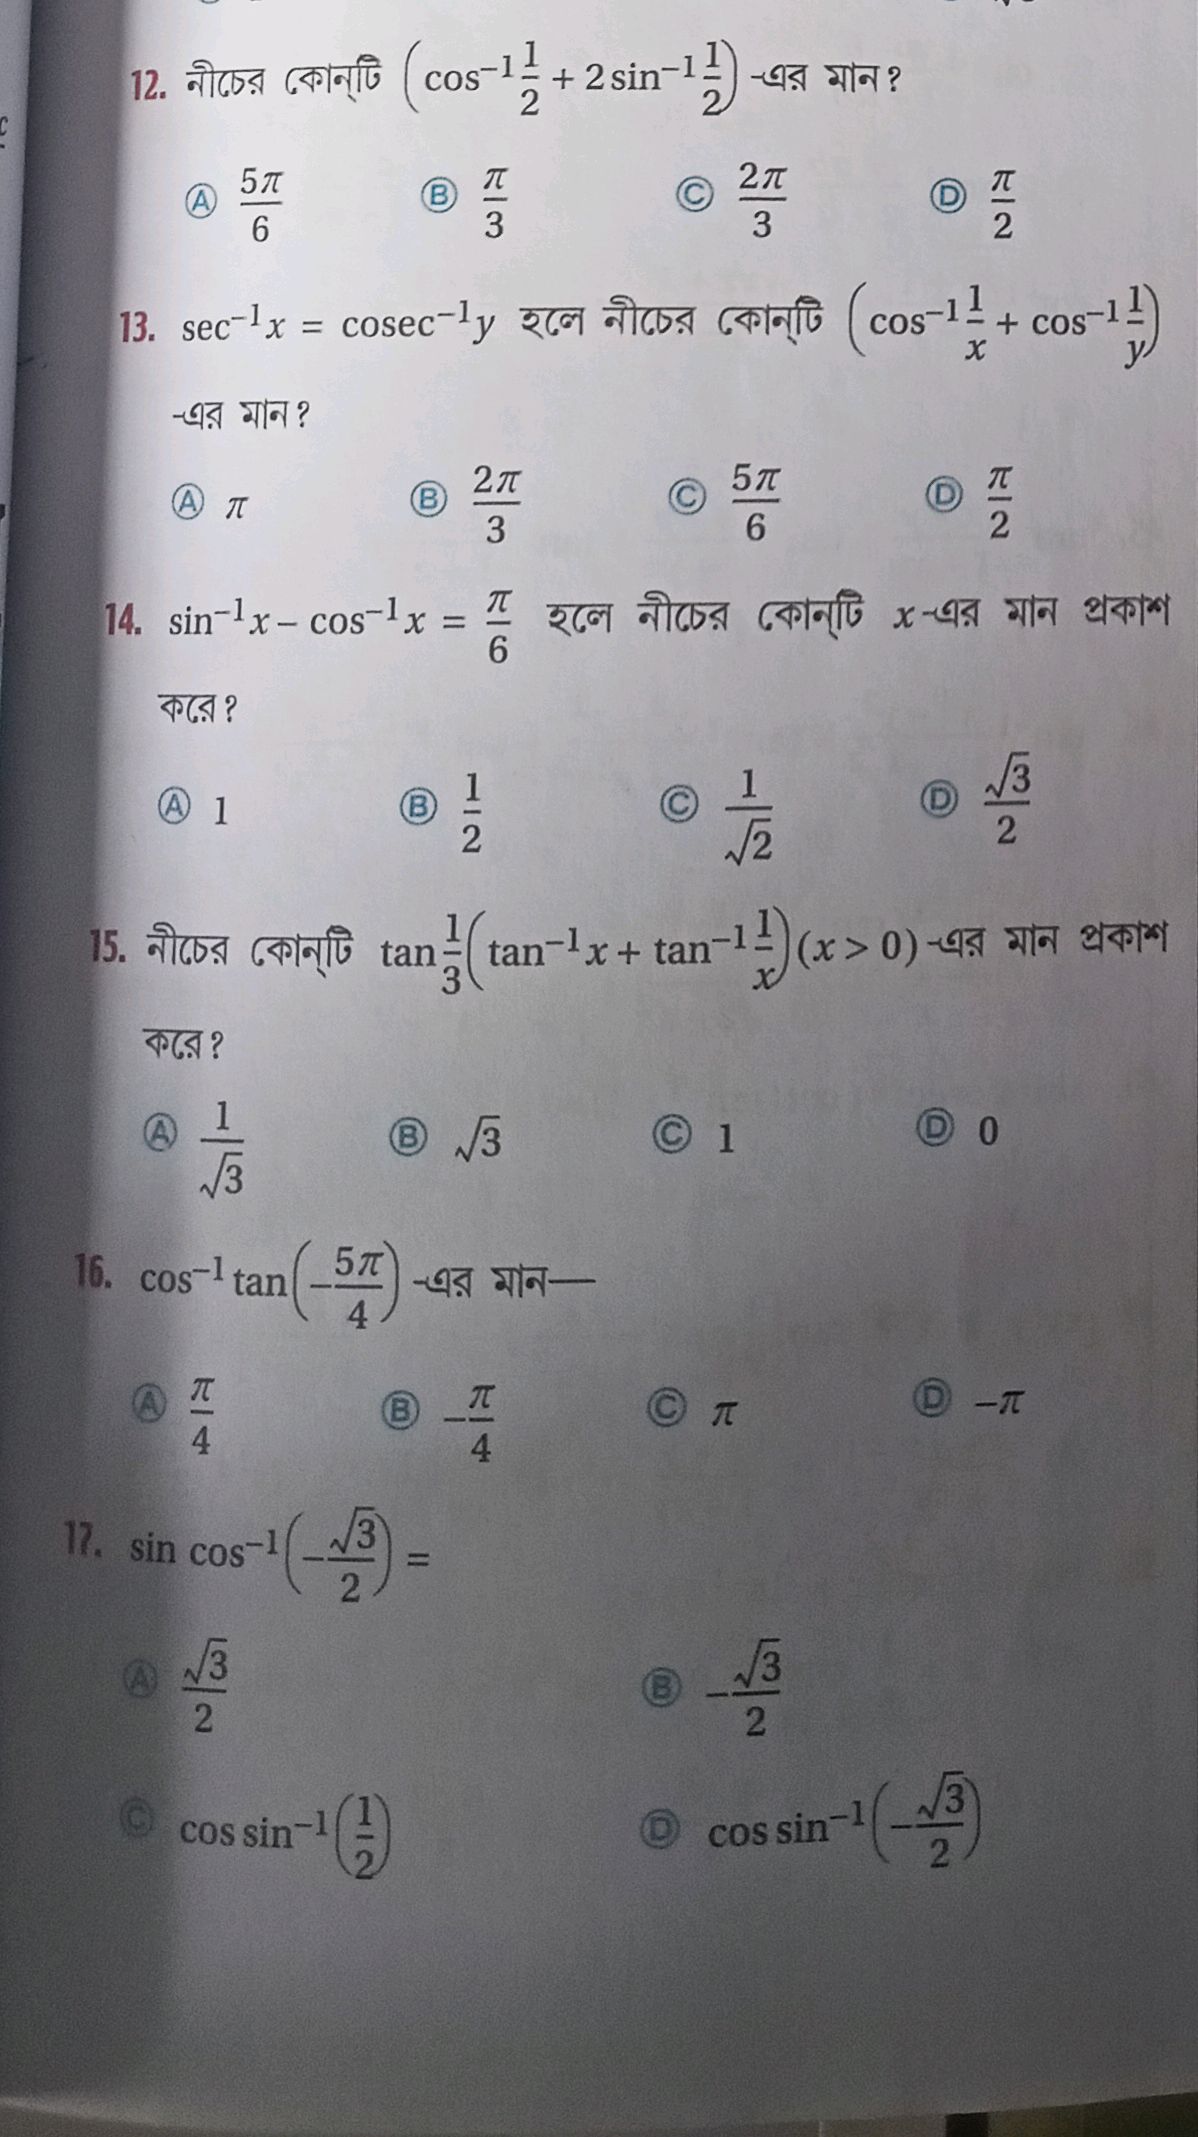 12. নীচের কোন্‌টি (cos⁻¹ 1/2 + 2 sin⁻¹ 1/2) -এর মান?
Ⓐ 5π/6 Ⓑ π/3 Ⓒ 2π/3 Ⓓ π/2
13. sec⁻¹x = cosec⁻¹y হলে নীচের কোন্‌টি (cos⁻¹ 1/x + cos⁻¹ 1/y)
-এর মান?
Ⓐ π Ⓑ 2π/3 Ⓒ 5π/6 Ⓓ π/2
14. sin⁻¹x – cos⁻¹x = π/6 হলে নীচের কোন্‌টি x-এর মান প্রকাশ
করে?
Ⓐ 1 Ⓑ 1/2 Ⓒ 1/√2 Ⓓ √3/2
15. নীচের কোন্‌টি tan 1/3 (tan⁻¹x + tan⁻¹ 1/x) (x > 0) -এর মান প্রকাশ
করে?
Ⓐ 1/√3 Ⓑ √3 Ⓒ 1 Ⓓ 0
16. cos⁻¹ tan(–5π/4) -এর মান—
Ⓐ π/4 Ⓑ –π/4 Ⓒ π Ⓓ –π
17. sin cos⁻¹(–√3/2) =
Ⓐ √3/2 Ⓑ –√3/2
Ⓒ cos sin⁻¹(1/2) Ⓓ cos sin⁻¹(–√3/2)